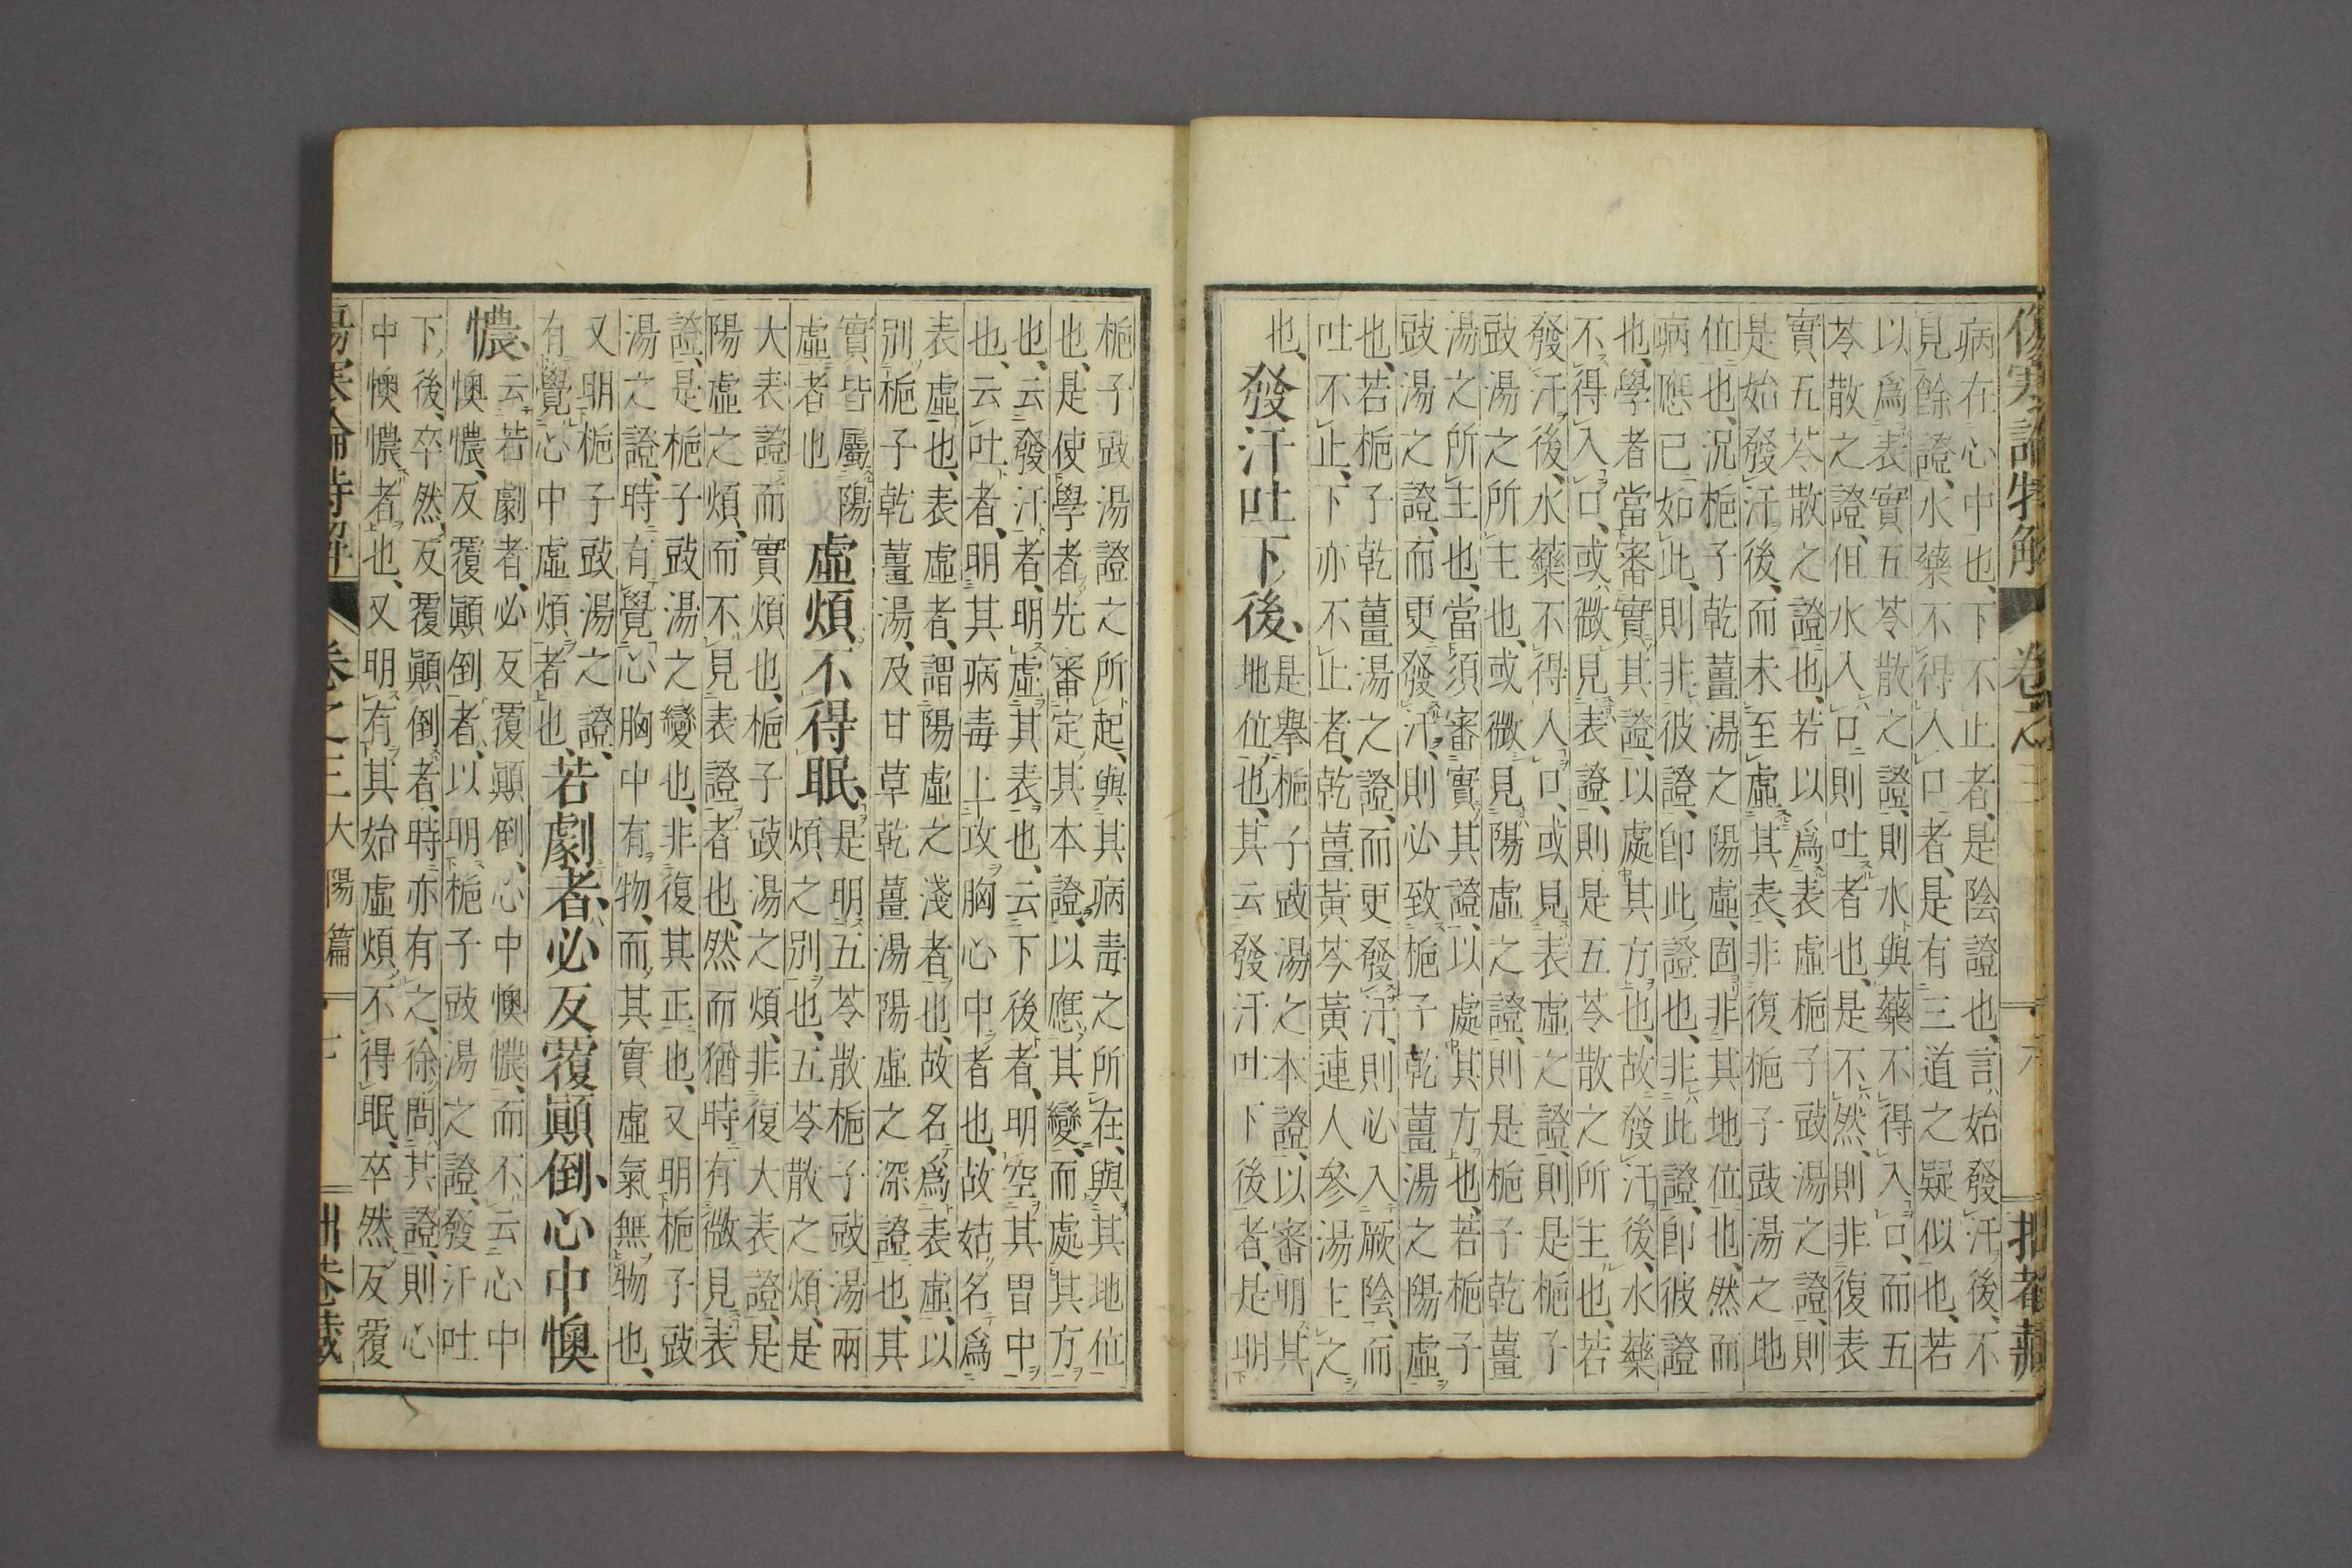 傷寒論特解 卷之三 六
病在心中也、下不止者、是陰證也、言始發汗後、不
見餘證、水藥不得入口者、是有三道之疑似也、若
以爲表實五苓散之證、則水與藥不得入口、而五
苓散之證、但水入口則吐者也、是不然、則非復表
實五苓散之證也、若以爲表虛梔子豉湯之證、則
是始發汗後、而未至虛其表、非復梔子豉湯之地
位也、況梔子乾薑湯之陽虛、固非其地位也、然而
病應已如此、則非彼證、卽此證也、非此證、卽彼證
也、學者當審實其證、以處其方也、故發汗後、水藥
不得入口、或微見表證、則是五苓散之所主也、若
發汗後、水藥不得入口、或見表虛之證、則是梔子
豉湯之所主也、或微見陽虛之證、則是梔子乾薑
湯之所主也、當須審實其證、以處其方也、若梔子
豉湯之證、而更發汗、則必致梔子乾薑湯之陽虛
也、若梔子乾薑湯之證、而更發汗、則必入厥陰、而
吐不止、下亦不止者、乾薑黃芩黃連人參湯主之
也、
發汗吐下後、
是擧梔子豉湯之本證、以審明其
地位也、其云發汗吐下後者、是明
梔子豉湯證之所起、與其病毒之所在、與其地位
也、是使學者先審定其本證、以應其變、而處其方
也、云發汗者、明虛其表也、云下後者、明空其胃中
也、云吐者、明其病毒上攻胸心中者也、故姑名爲
表虛也、表虛者、謂陽虛之淺者也、故名爲表虛、以
別梔子乾薑湯、及甘草乾薑湯陽虛之深證也、其
實皆屬陽
虛者也
虛煩不得眠、
是明五苓散梔子豉湯兩
煩之別也、五苓散之煩、是
大表證而實煩也、梔子豉湯之煩、非復大表證、是
陽虛之煩、而不見表證者也、然而猶時有微見表
證、是梔子豉湯之變也、非復其正也、又明梔子豉
湯之證、時有覺心胸中有物、而其實虛氣無物也、
又明梔子豉湯之證、
有覺心中虛煩者也、
若劇者、必反覆顚倒、心中懊
憹、
云若劇者、必反覆顚倒、心中懊憹、而不云心中
懊憹、反覆顚倒者、以明梔子豉湯之證、發汗吐
下後、卒然反覆顚倒者、時亦有之、徐問其證、則心
中懊憹者也、又明有其始虛煩不得眠、卒然反覆
傷寒論特解 卷之三 大陽篇 七